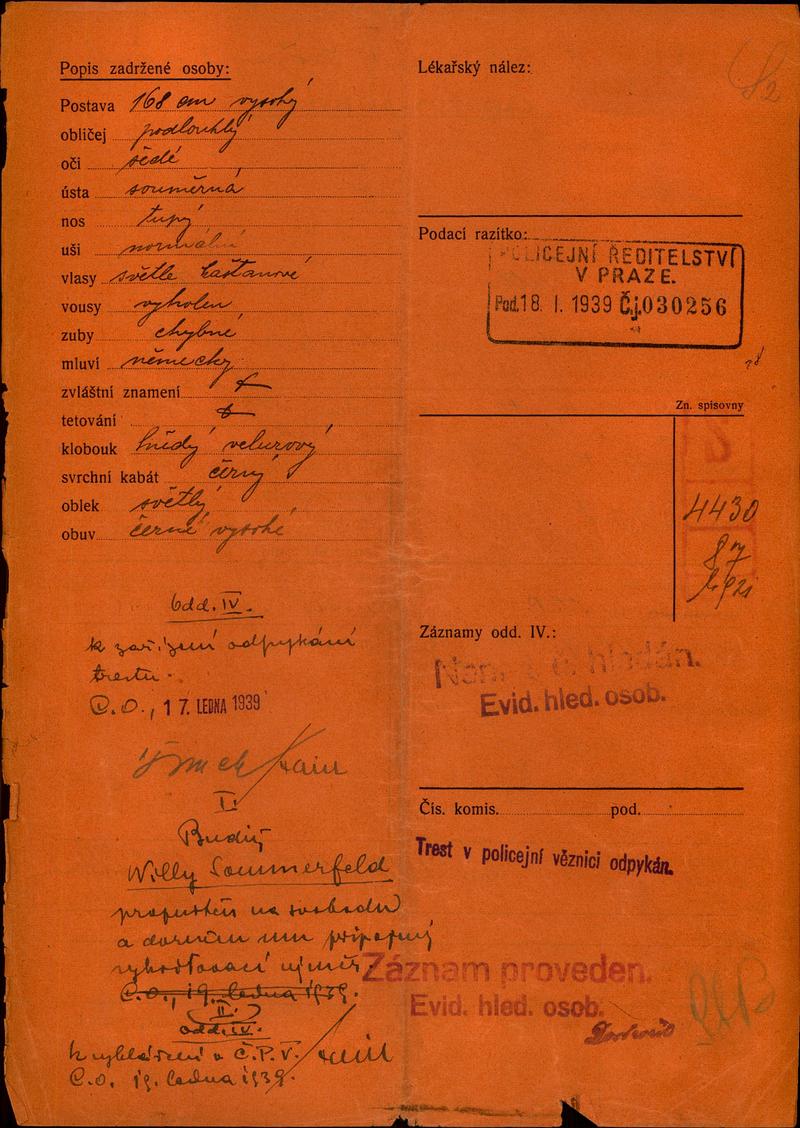 Popis zadržené osoby:
Postava 168 cm vysoký
obličej podlouhlý
oči šedé
ústa souměrná
nos tupý
uši normální
vlasy světle kaštanové
vousy vyholen
zuby chybné
mluví německy
zvláštní znamení
tetování
klobouk hnědý velurový
svrchní kabát černý
oblek světlý
obuv černé vysoké
Odd. IV.
k zařízení odpykání
trestu.
C.O., 17. LEDNA 1939
I.
Budiž
Willy Sommerfeld
propuštěn na svobodu
a doručen mu připojený
vyhošťovací výměr
C.O., 19. ledna 1939.
II.
odd. IV.
k vyhlášení v Č.P.V.
C.O. 19. ledna 1939.
Lékařský nález:
Podací razítko:
POLICEJNÍ ŘEDITELSTVÍ
V PRAZE.
Pod. 18. I. 1939 Č.j. 030256
Zn. spisovny
4430
Záznamy odd. IV.:
hledán.
Evid. hled. osob.
Čís. komis. pod.
Trest v policejní věznici odpykán.
Záznam proveden.
Evid. hled. osob.